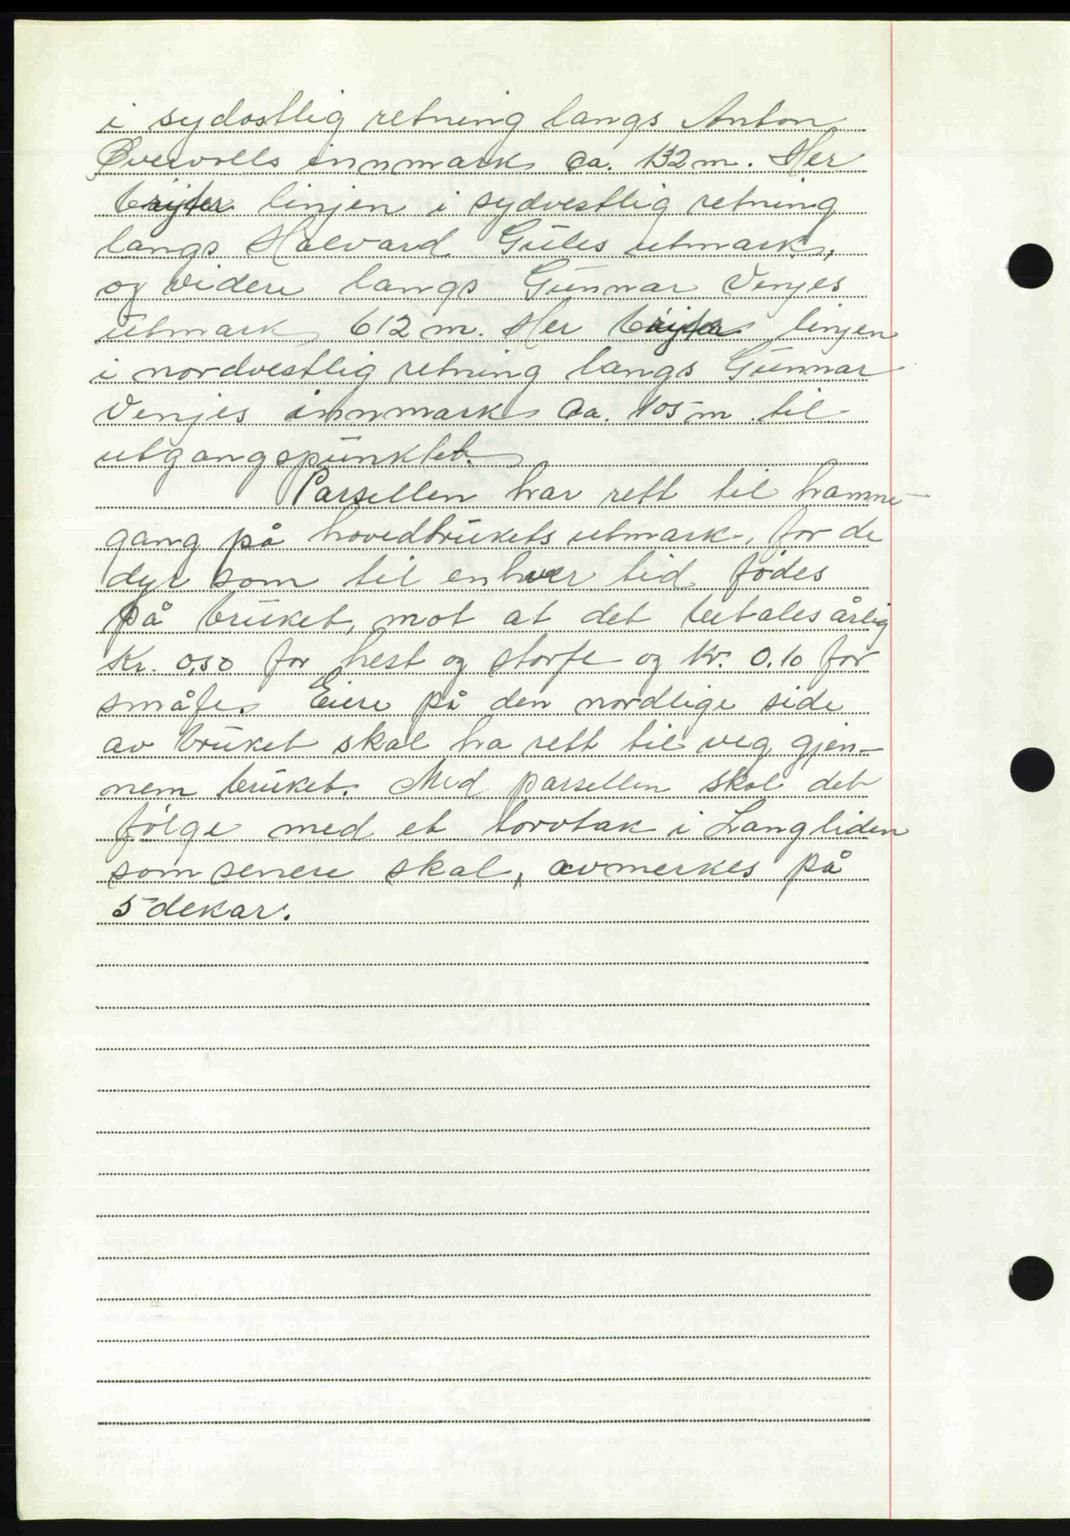 i sydostlig retning langs Anton
Øvervolls innmark ca. 132 m. Her
bøyer linjen i sydvestlig retning
langs Halvard Gules utmark,
og videre langs Gunnar Venjes
utmark, 612 m. Her bøyer linjen
i nordvestlig retning langs Gunnar
Venjes innmark ca. 105 m til
utgangspunktet.
Parsellen har rett til hamne-
gang på hovedbrukets utmark, for de
dyr som til enhver tid födes
på bruket, mot at det betales årlig
Kr. 0,50 for hest og storfe og kr. 0.10 for
småfe. Eiere på den nordlige side
av bruket skal ha rett til veg gjen-
nem bruket. Med parsellen skal det
følge med et torvtak i Langliden
som senere skal, avmerkes på
5 dekar.